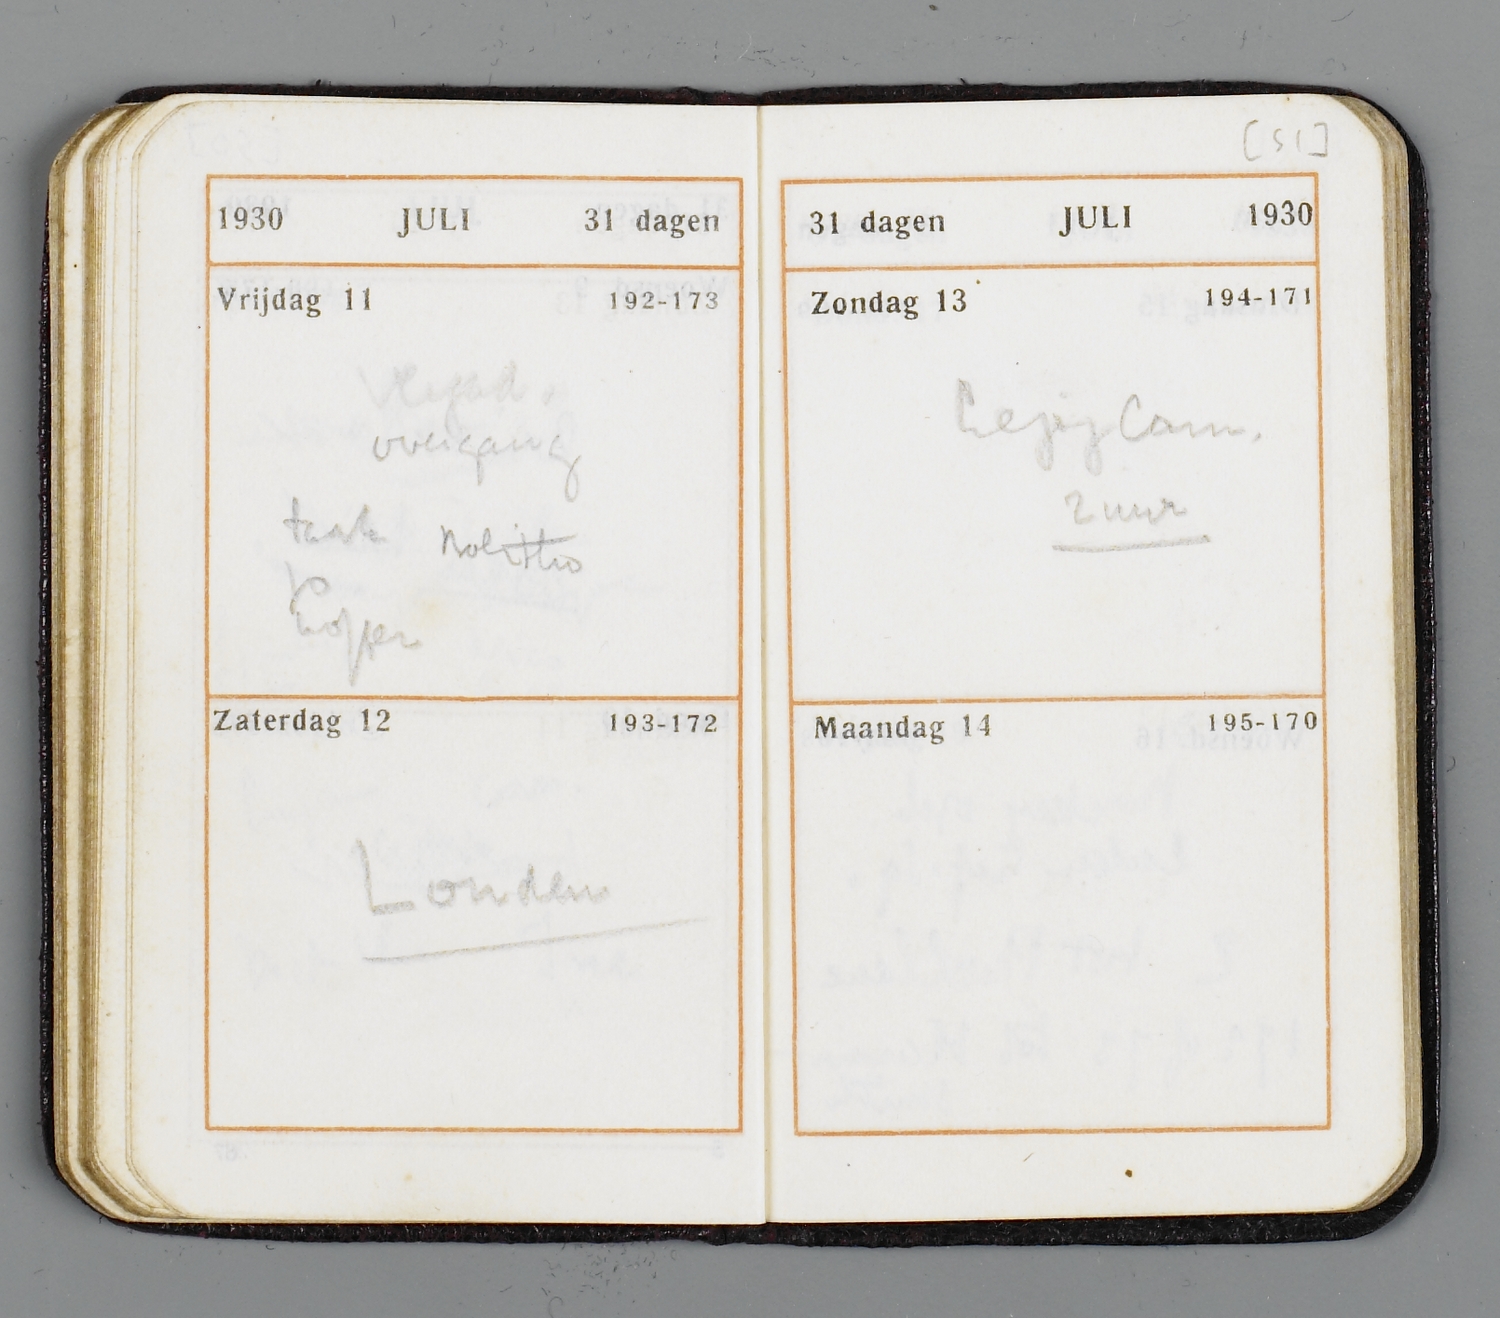 1930 JULI 31 dagen
Vrijdag 11 192-173
overgang
task Nolitho
Koffer
Zaterdag 12 193-172
Londen
[51]
31 dagen JULI 1930
Zondag 13 194-171
Com.
2 uur
Maandag 14 195-170